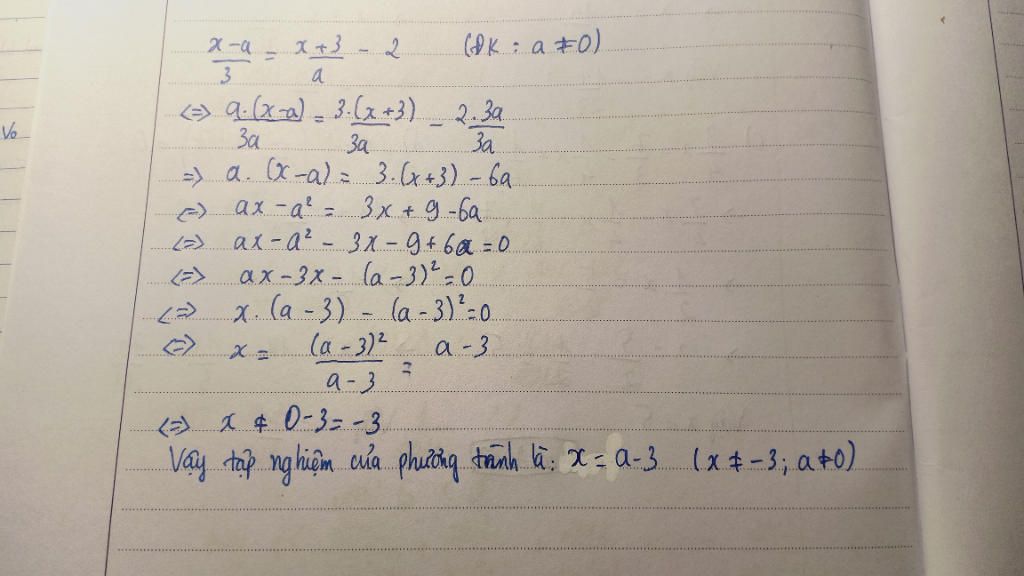 (x-a)/3 = (x+3)/a - 2 (ĐK : a ≠ 0)
<=> a.(x-a)/3a = 3.(x+3)/3a - 2.3a/3a
=> a. (x-a) = 3.(x+3) - 6a
<=> ax - a² = 3x + 9 - 6a
<=> ax - a² - 3x - 9 + 6a = 0
<=> ax - 3x - (a-3)² = 0
<=> x. (a-3) - (a-3)² = 0
<=> x = (a-3)²/(a-3) = a-3
<=> x ≠ 0-3 = -3
Vậy tập nghiệm của phương trình là: x = a-3 (x ≠ -3; a ≠ 0)
Vo